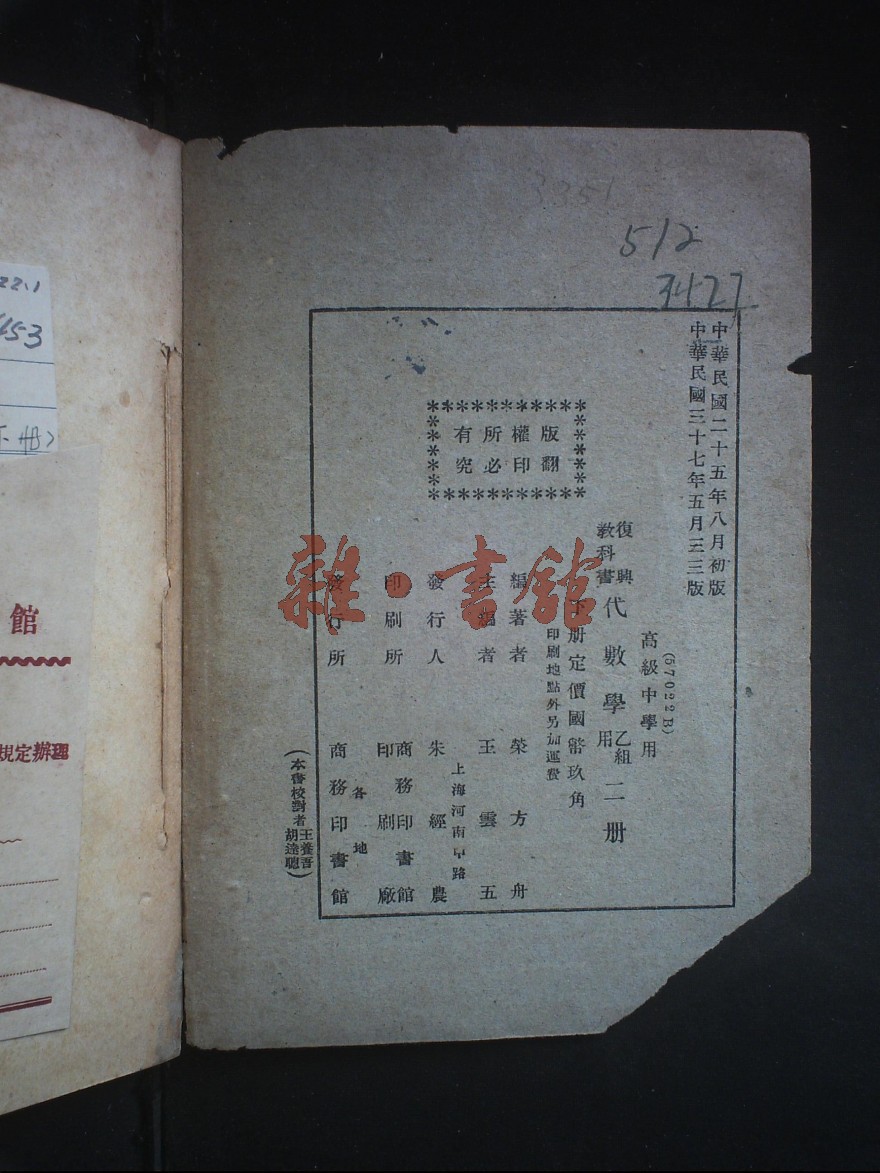 3351
512
3427
中華民國二十五年八月初版
中華民國三十七年五月三三版
(57022B)
高級中學用
復興
教科書
代數學
乙組
用
二册
下册定價國幣玖角
印刷地點外另加運費
版權所有
翻印必究
編著者 榮方舟
主編者 王雲五
上海河南中路
發行人 朱經農
印刷所 商務印書館
印刷廠
發行所 各地
商務印書館
(本書校對者 王養吾
胡達聰)
雜·書館
22.1
453
館
規定辦理